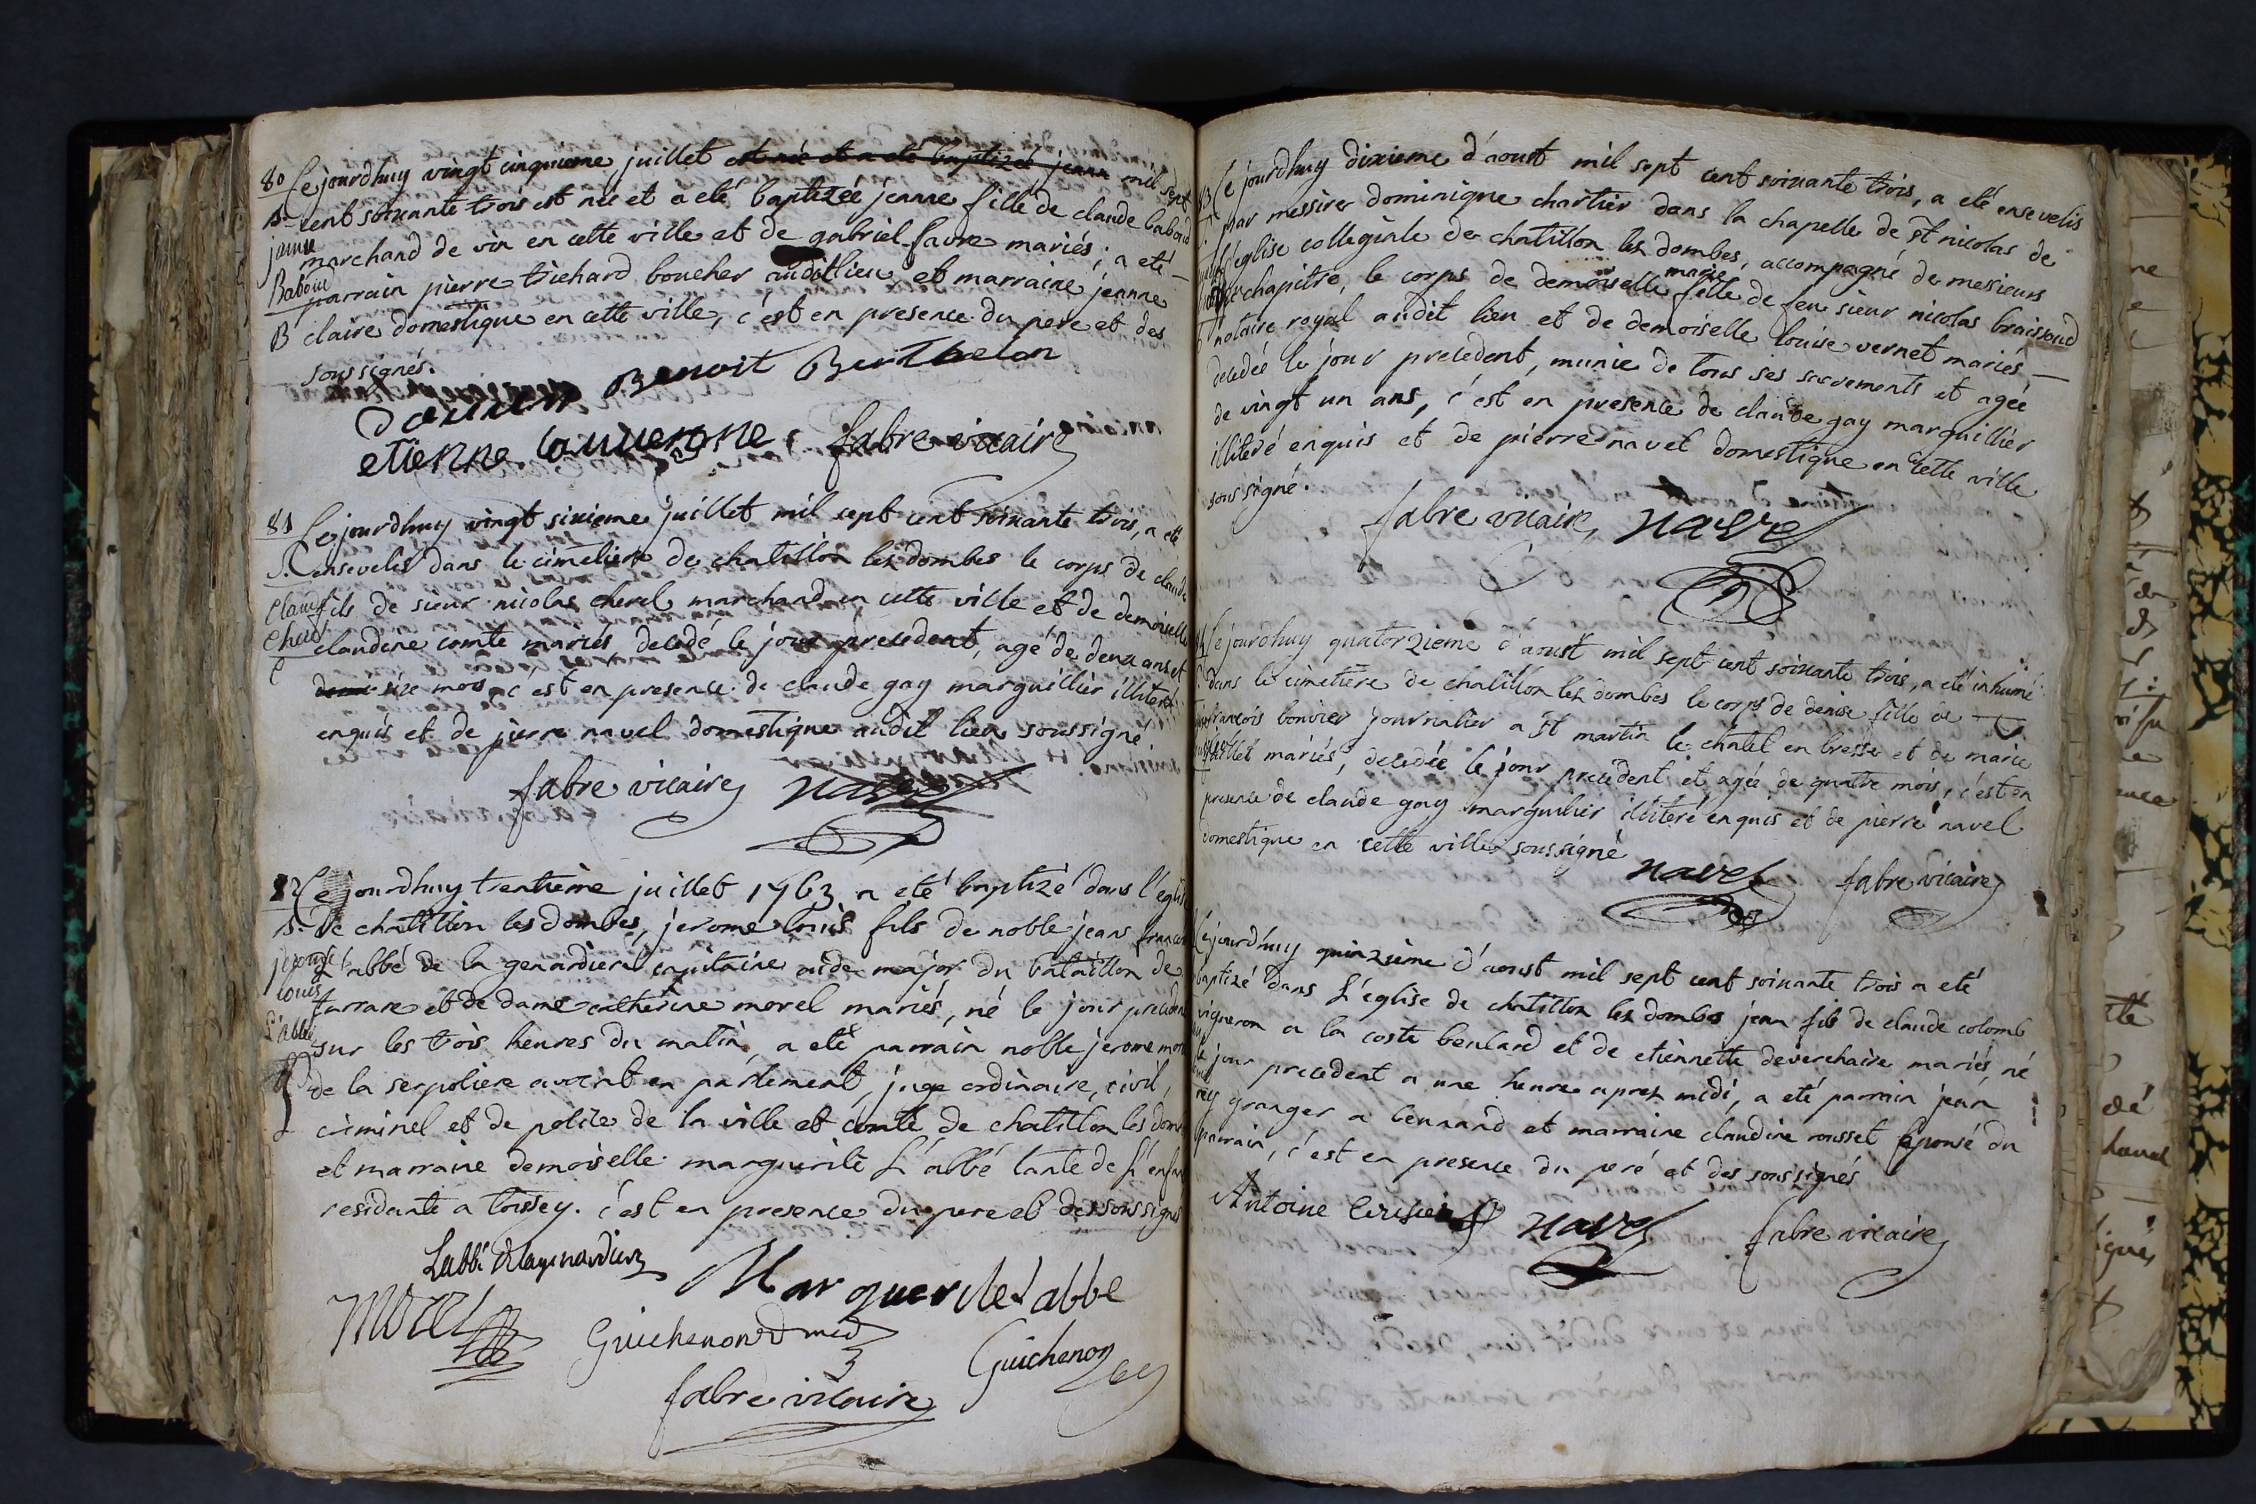 80
B.
jeanne
Baboud
B
Cejourdhuy vingt cinquieme juillet est née et a eté baptizeé jeanne mil sept
cent soixante trois est neé et a eté baptizeé jeanne fille de claude baboud
marchand de vin en cette ville et de gabriel favre mariés; a eté
parrain pierre trichard boucher audit lieu et marraine jeanne
claire domestique en cette ville, c'est en presence du pere et des
soussignés.
Benoit Berthelon
etienne fabre vicaire
81
S.
Claude
Cherel
C
Cejourdhuy vingt sixieme juillet mil sept cent soixante trois, a eté
enseveli dans le cimetiere de chatillon les dombes le corps de claude
fils de sieur nicolas cherel marchand en cette ville et de demoiselle
claudine comte mariés, decedé le jour precedent, agé de deux ans et
demi six mois, c'est en presence de claude gay marguillier illiteré
enquis et de pierre navel domestique audit lieu soussigné
fabre vicaire navel
82
B.
jerome
louis
L'abbé
Cejourdhuy trentieme juillet 1763 a eté baptizé dans l'eglise
de chatillon les dombes, jerome louis fils de noble jean francois
L'abbé de la genardiere capitaine aide major du bataillon de
tarrare et de dame catherine morel mariés, né le jour precedent
sur les trois heures du matin, a eté parrain noble jerome morel
de la serpoliere avocat en parlement, juge ordinaire, civil,
criminel et de police de la ville et comté de chatillon les dombes
et marraine demoiselle marguerite L'abbé tante de L'enfant
residante a toissey. c'est en presence du pere et des soussignés
Labbé Delagenardiere
Marguerite l'abbe
morel Guichenon d med
Guichenon
fabre vicaire
83
Cejourdhuy dixieme d'aoust mil sept cent soixante trois, a eté ensevelis
par messire dominique chartier dans la chapelle de st nicolas de
l'eglise collegiale de chatillon les dombes, accompagné de messieurs
du chapitre, le corps de demoiselle marie fille de feu sieur nicolas braissoud
notaire royal audit lieu et de demoiselle louise vernet mariés
decedée le jour precedent, munie de tous ses sacrements et agée
de vingt un ans, c'est en presence de claude gay marguillier
illiteré enquis et de pierre navel domestique en cette ville
soussigné.
fabre vicaire, navel
Cejourdhuy quatorzieme d'aoust mil sept cent soixante trois, a eté inhumé
dans le cimetiere de chatillon les dombes le corps de denise fille de
françois bouvier journalier a st martin le chatel en bresse et de marie
mariés, decedée le jour precedent et agée de quatre mois, c'est en
presence de claude gay marguillier illiteré enquis et de pierre navel
domestique en cette ville soussigné
navel fabre vicaire
Cejourdhuy quinzieme d'aoust mil sept cent soixante trois a eté
baptizé dans L'eglise de chatillon les dombes jean fils de claude colomb
vigneron a la coste beulard et de etiennette deverchaire mariés né
le jour precedent a une heure apres midi, a eté parrain jean
rey granger a bennand et marraine claudine rousset eponsé du
parrain, c'est en presence du peré et des soussignés
Antoine navel fabre vicaire